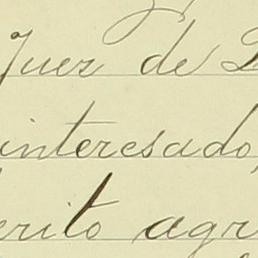 Juez de
interesado,
erito agr